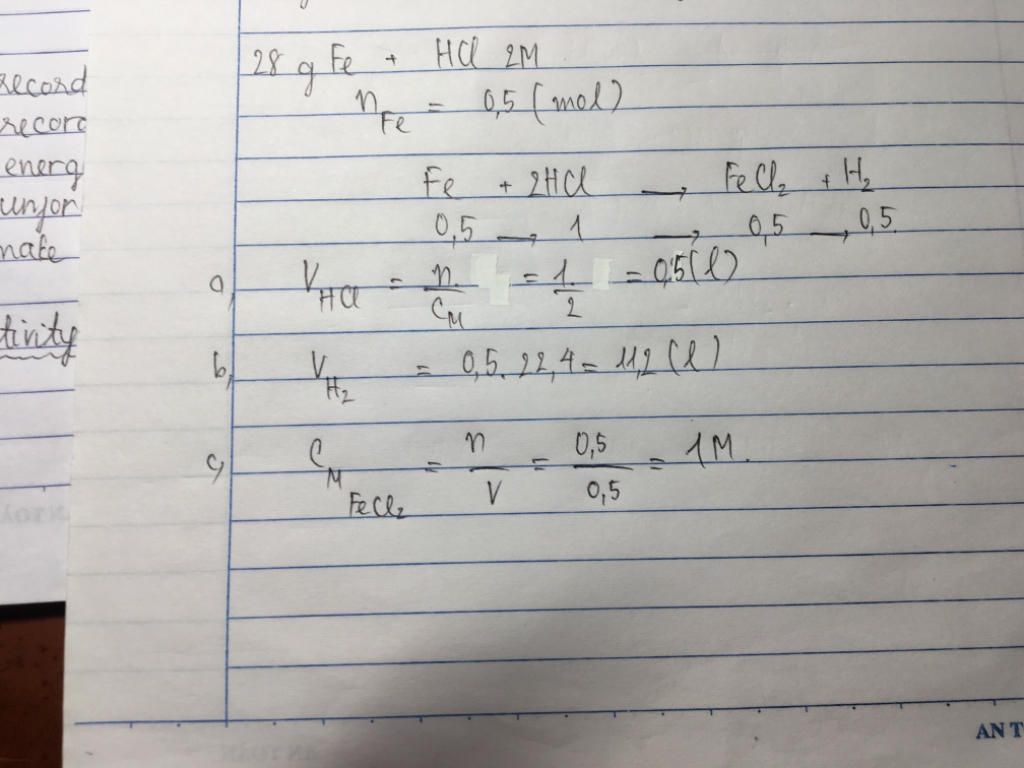 record
recorc
energ
unjor
nate
tivity
28 g Fe + HCl 2M
n_Fe = 0,5 (mol)
Fe + 2HCl → FeCl₂ + H₂
0,5 → 1 → 0,5 → 0,5.
a, V_HCl = n/C_M = 1/2 = 0,5 (l)
b, V_H₂ = 0,5. 22,4 = 11,2 (l)
c, C_M FeCl₂ = n/V = 0,5/0,5 = 1M.
AN T